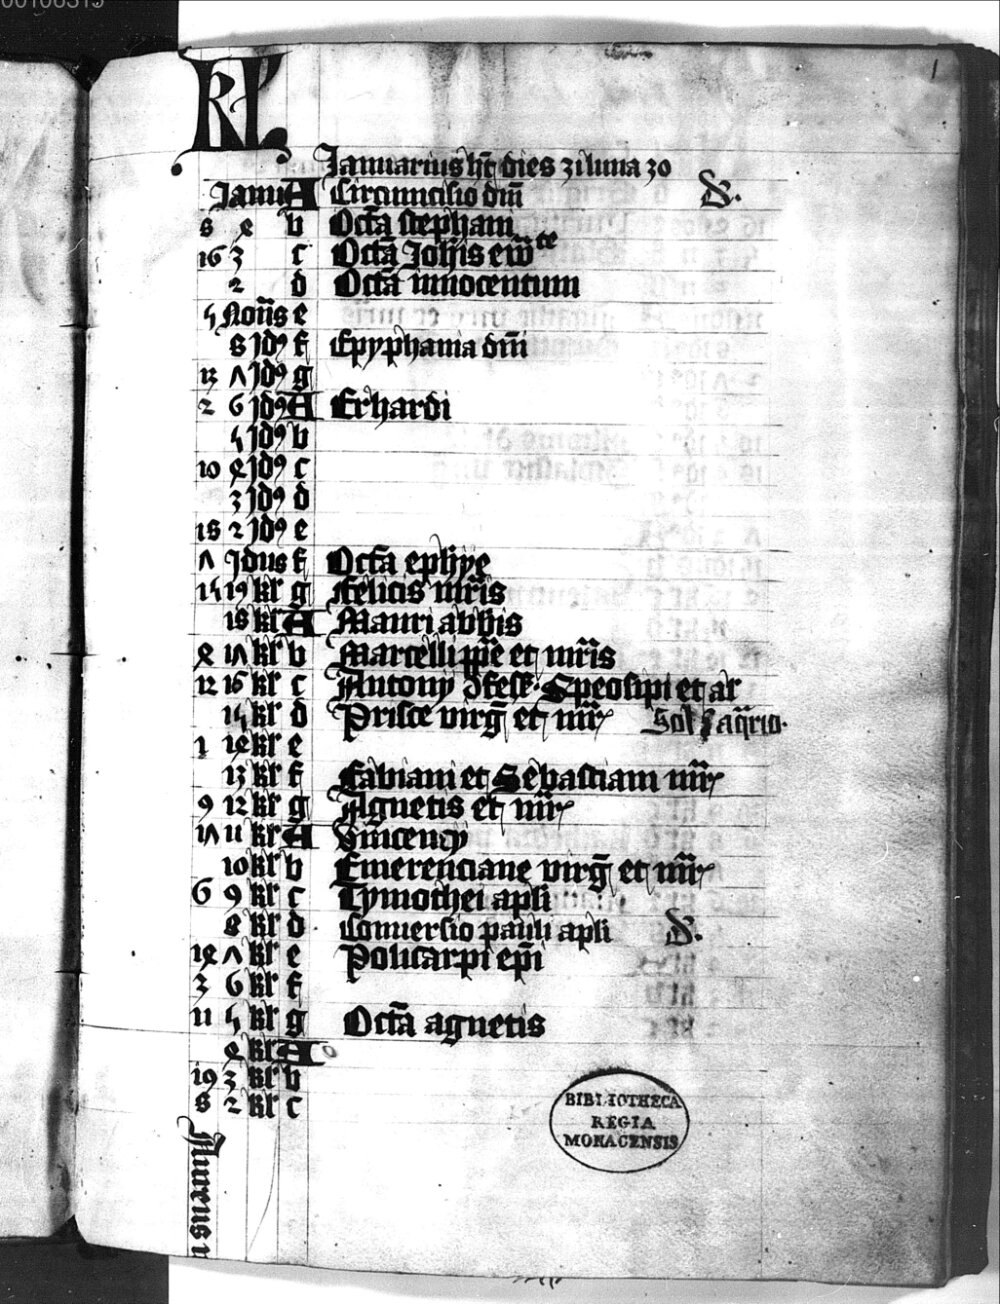 00106315
1
KL
Januarius ht̄ dies 31 luna 30
Janu A Circumcisio dm̄ &.
8 e b Octā stephani
16 3 c Octā Johīs ew̄te
2 d Octā innocentum
5 Noīis e
8 Jdꝰ f Epyphania dm̄i
13 Λ Jdꝰ g
2 6 Jdꝰ A Erhardi
5 Jdꝰ b
10 ꝗ Jdꝰ c
3 Jdꝰ d
18 2 Jdꝰ e
Λ Jdus f Octā ephye
15 19 kl g Felicis mr̄is
18 kl A Mauri abbis
ꝗ 1Λ kl b Marcelli ppe et mr̄is
12 16 kl c Antony ꝯfess· Speosipi et al
15 kl d Prisce virḡ et mr̄ Sol ī aqrio.
1 1ꝗ kl e
13 kl f Fabiani et Sebastiani mr̄
9 12 kl g Agnetis et mr̄
1Λ 11 kl A Vincency
10 kl b Emerenciane virḡ et mr̄
6 9 kl c Tymothei apli
8 kl d Conuersio pauli apli &.
1ꝗ Λ kl e Policarpi epī
3 6 kl f
11 5 kl g Octā agnetis
ꝗ kl A
19 3 kl b
8 2 kl c
BIBLIOTHECA
REGIA
MONACENSIS